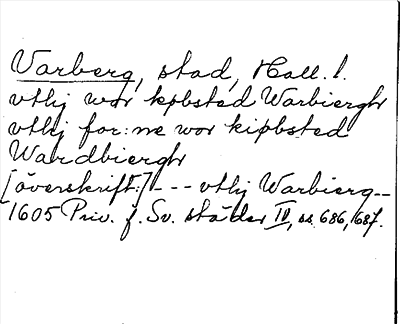 Varberg, stad, Hall. l.
vthj wor kpbsted Warbiergh
vthj for:ne wor kipbsted
Wardbiergh
[överskrift:] --- vthj Warbierg--
1605 Priv. f. Sv. städer IV, ss. 686, 687.